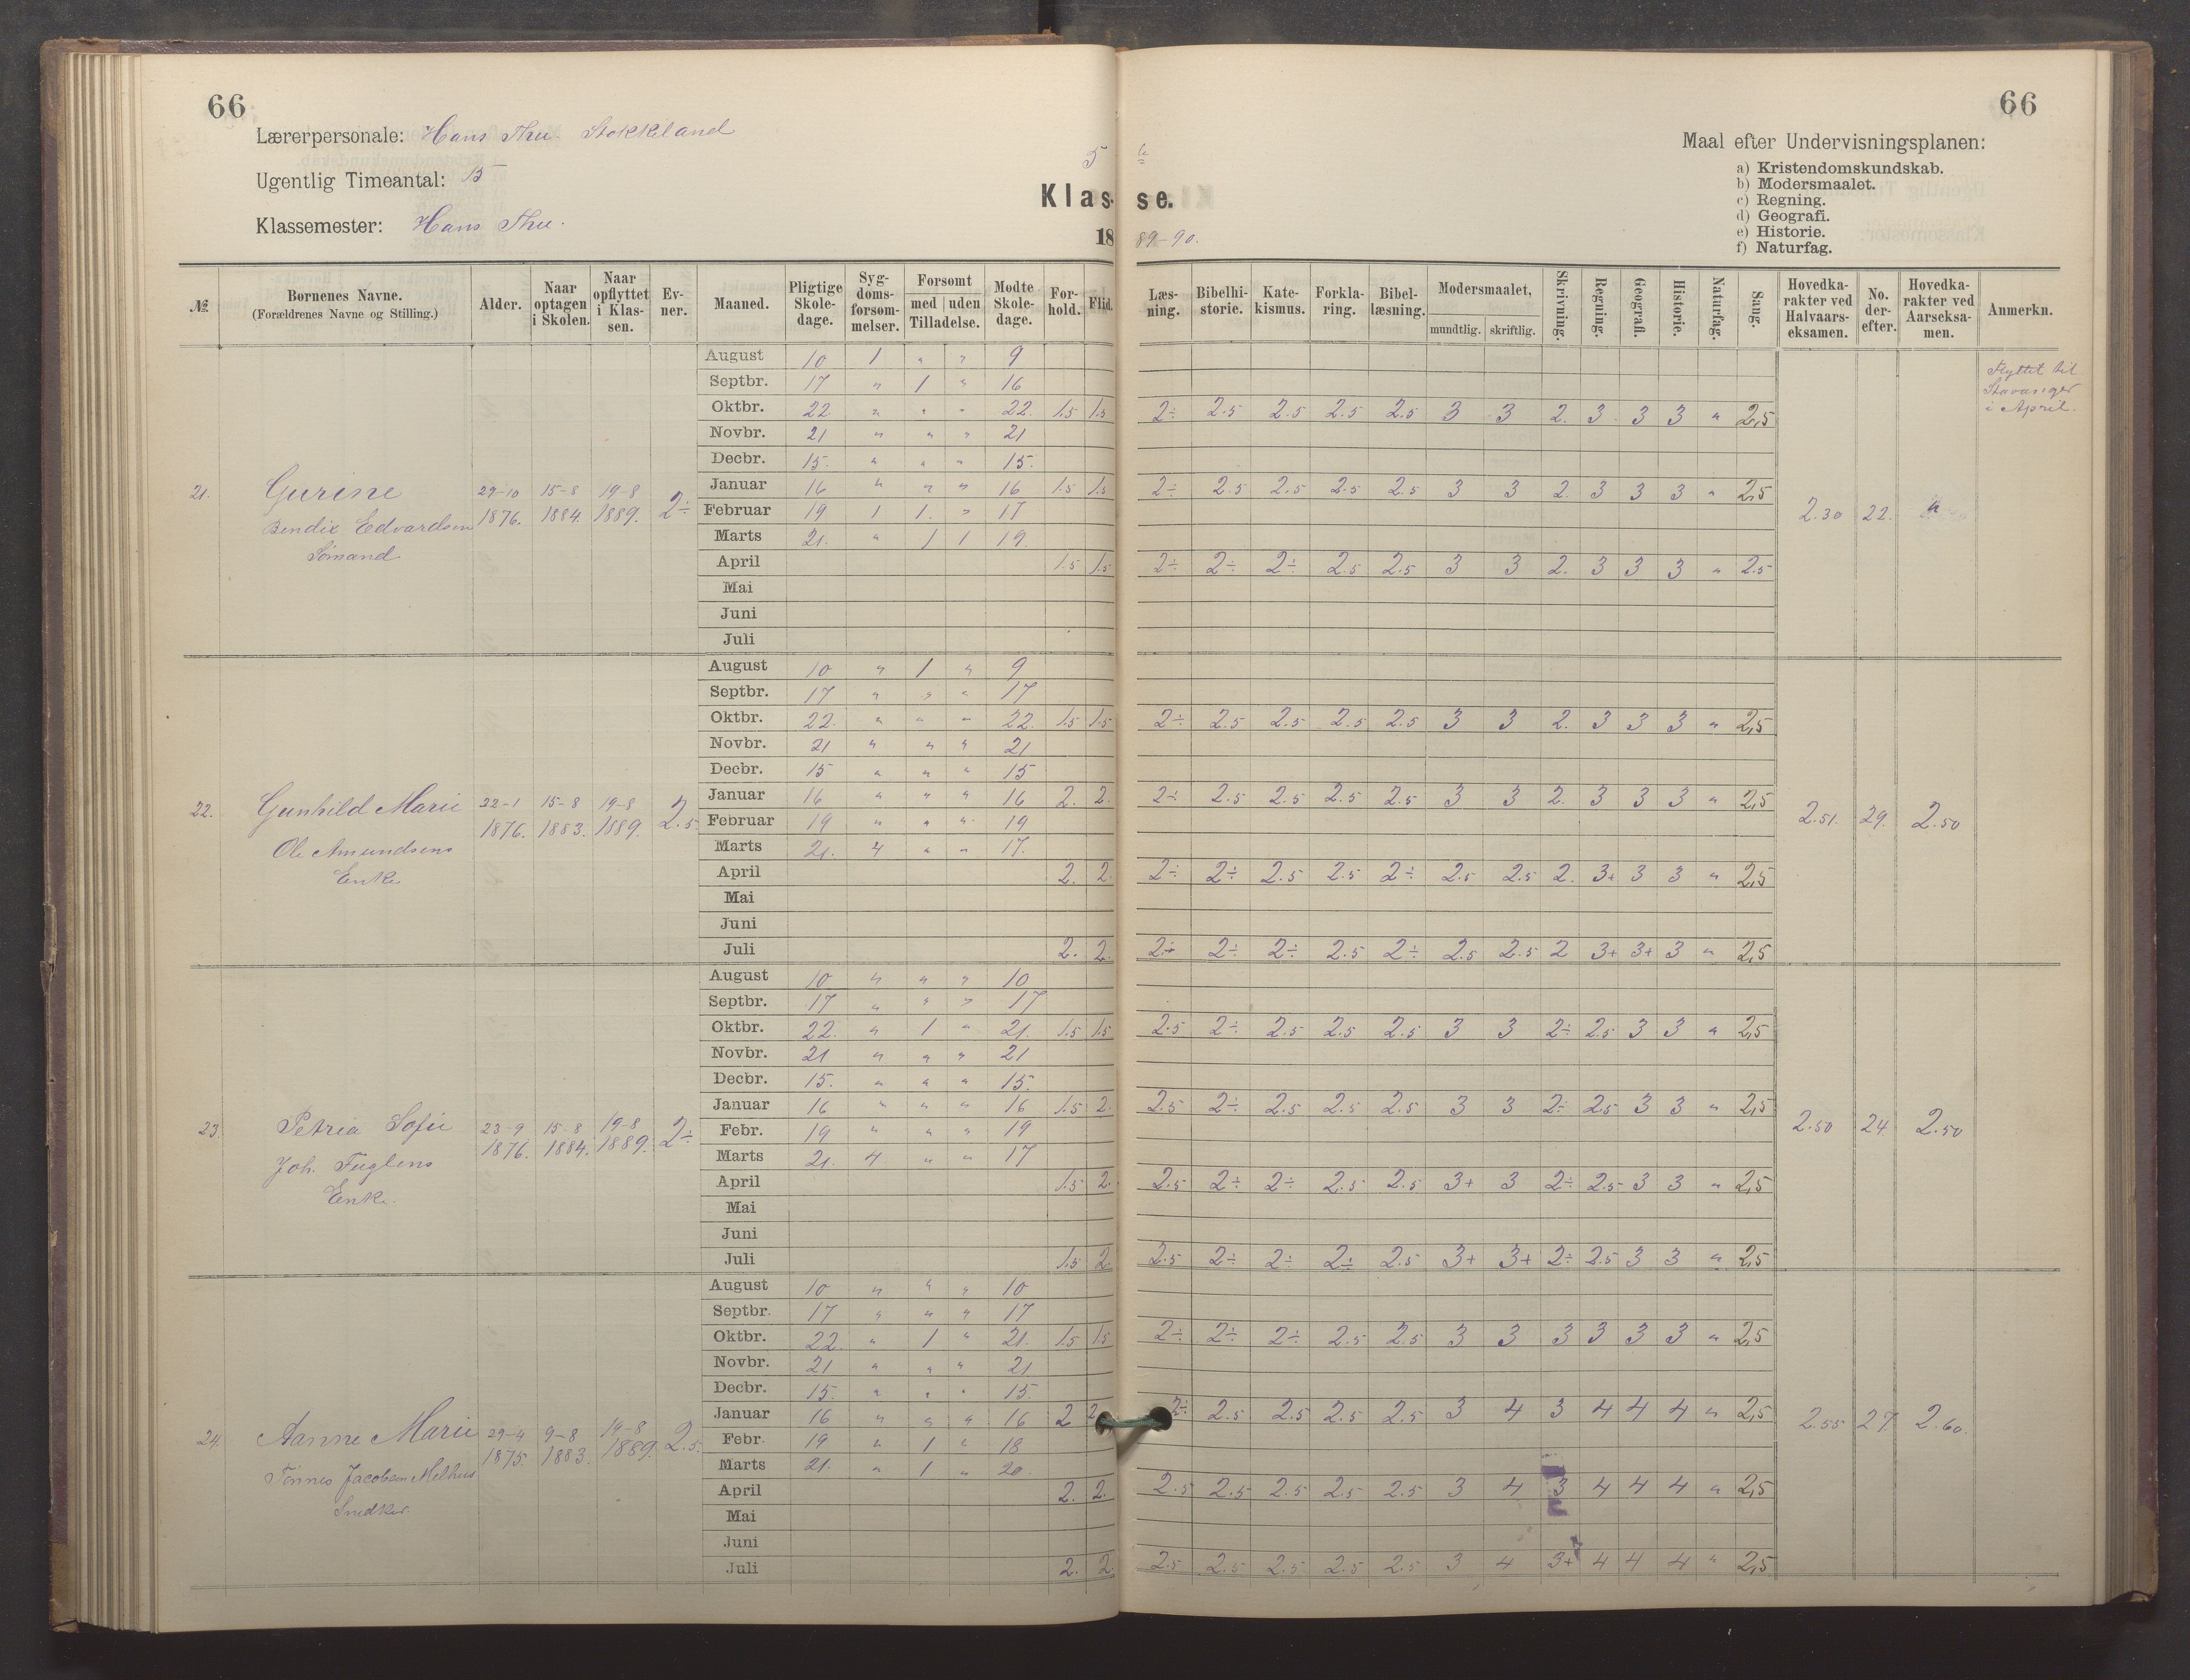 66
66
Lærerpersonale: Hans Thu Stokkeland
Ugentlig Timeantal: 15
Klassemester: Hans Thu.
5 te
Klas- se.
18 89-90.
Maal efter Undervisningsplanen:
a) Kristendomskundskab.
b) Modersmaalet.
c) Regning.
d) Geografi.
e) Historie.
f) Naturfag.
№ | Børnenes Navne. (Forældrenes Navne og Stilling.) | Alder. | Naar optagen i Skolen. | Naar opflyttet i Klassen. | Evner. | Maaned. | Pligtige Skoledage. | Sygdomsforsømmelser. | Forsømt med uden Tilladelse. | Mødte Skoledage. | Forhold. | Flid. | Læsning. | Bibelhistorie. | Katekismus. | Forklaring. | Bibellæsning. | Modersmaalet, mundtlig. skriftlig. | Skrivning. | Regning. | Geografi. | Historie. | Naturfag. | Sang. | Hovedkarakter ved Halvaarseksamen. | No. derefter. | Hovedkarakter ved Aarseksamen. | Anmerkn.
21. Gurine
Bendix Edvardsen
Sømand
29-10 1876. 15-8 1884. 19-8 1889. 2÷
August 10 1 " " 9
Septbr. 17 " 1 " 16
Oktbr. 22 " " " 22. 1.5 1.5 2÷ 2.5 2.5 2.5 2.5 3 3 2. 3 3 3 " 2,5
Novbr. 21 " " " 21
Decbr. 15. " " " 15.
Januar 16 " " " 16 1.5 1.5 2÷ 2.5 2.5 2.5 2.5 3 3 2. 3 3 3 " 2,5
Februar 19 1 1. " 17
Marts 21. " 1 1 19
April 1.5 1.5 2÷ 2÷ 2÷ 2.5 2.5 3 3 2. 3 3 3 " 2.5
Mai
Juni
Juli
2.30 22. "
Flyttet til
Stavanger
i April.
22. Gunhild Marie
Ole Amundsens
Enke
22-1 1876. 15-8 1883. 19-8 1889. 2.5
August 10 " 1 " 9
Septbr. 17 " " " 17
Oktbr. 22. " " " 22. 1.5 1.5 2÷ 2.5 2.5 2.5 2.5 3 3 2. 3 3 3 " 2,5
Novbr. 21 " " " 21
Decbr. 15 " " " 15
Januar 16 " " " 16 2. 2. 2÷ 2.5 2.5 2.5 2.5 3 3 2. 3 3 3 " 2,5
Februar 19 " " " 19
Marts 21. 4 " " 17.
April 2. 2. 2÷ 2÷ 2.5 2.5 2÷ 2.5 2.5 2. 3+ 3 3 " 2,5
Mai
Juni
Juli 2. 2. 2÷ 2÷ 2÷ 2.5 2÷ 2.5 2.5 2 3+ 3+ 3 " 2,5
2.51. 29. 2.50
23. Petria Sofie
Joh. Fuglens
Enke.
23-9 1876. 15-8 1884. 19-8 1889. 2÷
August 10 " " " 10
Septbr. 17 " " " 17
Oktbr. 22. " 1 " 21. 1.5 1.5 2.5 2÷ 2.5 2.5 2.5 3 3 2÷ 2.5 3 3 " 2,5
Novbr. 21 " " " 21
Decbr. 15. " " " 15.
Januar 16 " " " 16 1.5 2. 2.5 2÷ 2.5 2.5 2.5 3 3 2÷ 2.5 3 3 " 2,5
Febr. 19 " " " 19
Marts 21. 4 " " 17
April 1.5 2. 2.5 2÷ 2÷ 2.5 2.5 3+ 3 2÷ 2.5 3 3 " 2,5
Mai
Juni
Juli 1.5 2. 2.5 2÷ 2÷ 2÷ 2.5 3+ 3+ 2÷ 2.5 3 3 " 2,5
2.50 24 2.50
24. Aanne Marie
Tønnes Jacobsen Melhus
Snedker
29-4 1875. 9-8 1883. 19-8 1889. 2.5.
August 10 " " " 10
Septbr. 17 " " " 17
Oktbr. 22. " 1 " 21. 1.5 1.5 2÷ 2÷ 2÷ 2.5 2.5 3 3 3 3 3 3 " 2,5
Novbr. 21 " " " 21
Decbr. 15. " " " 15.
Januar 16 " " " 16 2 2 2÷ 2.5 2.5 2.5 2.5 3 4 3 4 4 4 " 2,5
Febr. 19 " 1 " 18
Marts 21. " 1 " 20.
April 2. 2. 2.5 2.5 2.5 2.5 2.5 3 4 3 4 4 4 " 2,5
Mai
Juni
Juli 2. 2. 2.5 2.5 2.5 2.5 2.5 3 4 3+ 4 4 4 " 2,5
2.55 27. 2.60.